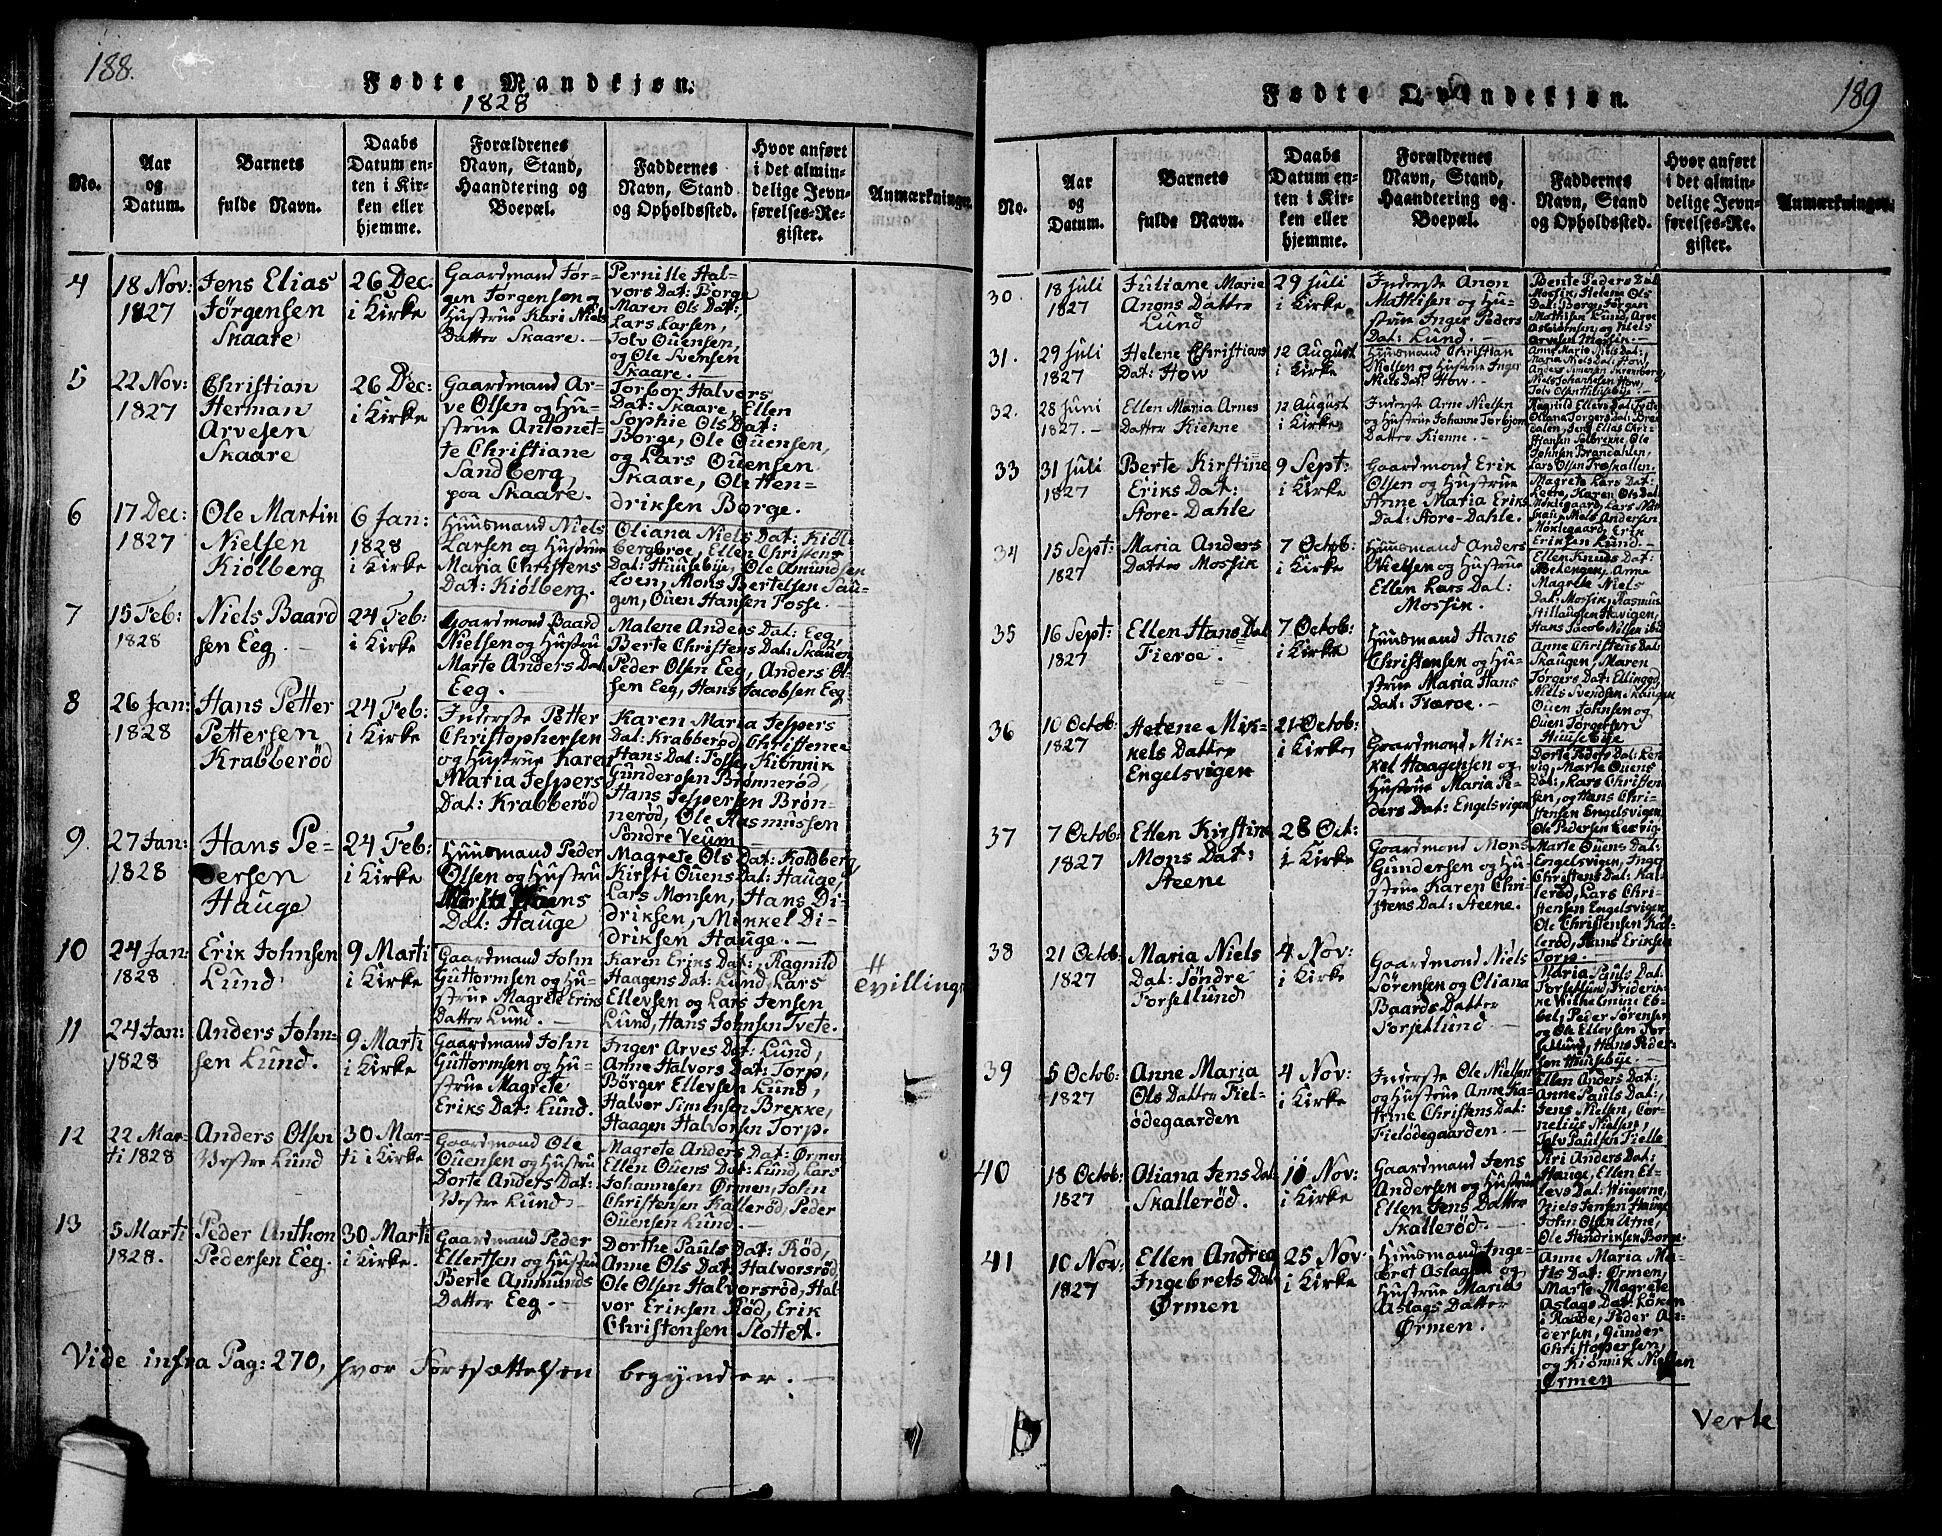 188.
Fødte Mandkjøn.
1828
No.
Aar
og
Datum.
Barnets
fulde Navn.
Daabs
Datum en-
ten i Kir-
ken eller
hjemme.
Forældrenes
Navn, Stand,
Haandtering og
Boepæl.
Faddernes
Navn, Stand
og Opholdssted.
Hvor anført
i det almin-
delige Jevn-
førelses-Re-
gister.
Anmærkninger.
4
18 Nov:
1827
Jens Elias
Jörgensen
Skaare
26 Dec.
i Kirke
Gaardmand Jør-
gen Jørgensen og
Hustrue Kari Niels
Datter Skaare. —
Pernille Hal-
vors Dat: Borge
Maren Ols Dat:,
Lars Larsen,
Tolv Ouensen,
og Ole Svensen
Skaare. —
5
22 Nov:
1827
Christian
Herman
Arvesen
Skaare
26 Dec:
i Kirke
Gaardmand Ar-
ve Olsen og Hu-
strue Antonet-
te Christiane
Sandberg,
paa Skaare.
Torbor Halvors
Dat: Skaare, Ellen
Sophie Ols Dat:
Borge, Ole Ouensen,
og Lars Ouensen
Skaare, Ole Hen-
driksen Borge. —
6
17 Dec:
1827
Ole Martin
Nielsen
Kiölberg
6 Jan:
1828
i Kirke
Huusmand Niels
Larsen og Hustrue
Maria Christens
Dat: Kiölberg.
Oliana Niels Dat: Kiöl-
bergbroe, Ellen Christens
Dat: Huusebÿe, Ole Amundsen
Loen, Mons Bertelsen Hau-
gen, Ouen Hansen Fosse. —
7
15 Feb:
1828
Niels Baard
sen Eeg. —
24 Feb:
i Kirke
Gaardmand Baard
Nielsen og Hustru
Marte Anders Dat
Eeg. —
Malene Anders Dat: Eeg,
Berte Christens Dat: Skauen
Peder Olsen Eeg, Anders Ol-
sen Eeg, Hans Jacobsen Eeg
8
26 Jan:
1828
Hans Petter
Pettersen
Krabberöd
24 Feb:
i Kirke
Inderste Petter
Christophersen
og Hustrue Karen
Maria Jespers
Dat: Krabberöd
Karen Maria Jespers
Dat: Krabberöd, Christence
Hans Dat: Fosse, Kiönnik
Gundersen Brønnerød,
Hans Jespersen Brøn-
nerød, Ole Rasmussen
Söndre Veum
9.
27 Jan:
1828
Hans Pe-
dersen
Hauge
24 Feb:
i Kirke
Huusmand Peder
Olsen og Hustru
Dat: Hauge
Magrete Ols Dat: Koldberg
Kirsti Ouens Dat: Hauge,
Lars Monsen, Hans Di-
driksen, Minkel Di-
driksen Hauge. —
10
24 Jan:
1828
Erik Johnsen
Lund
9 Marti
i Kirke
Gaardmand John
Guttormsen og Hu-
strue Magrete Eriks
Datter Lund. —
Karen Eriks Dat:, Ragnild
Haagens Dat: Lund, Lars
Ellevsen og Lars Jensen
Lund, Hans Johnsen Tvete.
#
Tvillinge
11
24 Jan:
1828
Anders John-
sen Lund.
9 Marti
i Kirke
Gaardmand John
Guttormsen og Hu-
strue Magrete
Eriks Dat: Lund.
Inger Arves Dat: Lund,
Anne Halvors Dat: Torp,
Börger Ellevsen Lund,
Halvor Simensen Brekke,
Haagen Halvorsen Torp.
12
22 Mar-
ti 1828
Anders Olsen
Vestre Lund
30 Mar-
ti i Kirke
Gaardmand Ole
Ouensen og Hustru
Dorte Anders Dat:
Vestre Lund
Magrete Anders Dat: Ørmen
Ellen Ouens Dat: Lund, Lars
Johannesen Ørmen, John
Christensen Kallerød, Peder
Ouensen Lund.
13
5 Marti
1828.
Peder Anthon
Pedersen Eeg.
30 Marti
i Kirke.
Gaardmand Peder
Ellertsen og Hustru
Berte Ammunds
Datter Eeg. —
Dorthe Pauls Dat: Röd,
Anne Ols Dat: Halvorsröd,
Ole Olsen Halvorsröd, Hal-
vor Eriksen Röd, Erik
Christensen Slottet.
Vide infra Pag: 270, hvor Fortsættelsen begynder. —
189
Fødte Qvindekjøn.
No.
Aar
og
Datum.
Barnets
fulde Navn.
Daabs
Datum en-
ten i Kir-
ken eller
hjemme.
Forældrenes
Navn, Stand,
Haandtering og
Boepæl.
Faddernes
Navn, Stand
og Opholdssted.
Hvor anført
i det almin-
delige Jevn-
førelses-Re-
gister.
Anmærkninger.
30.
18 Juli
1827
Juliane Marie
Anons Datter
Lund
29 Juli
i Kirke
Inderste Anon
Mathisen og Hu-
strue Inger Peders
Dat: Lund. —
Bente Peders Dat
Mossik, Helene Ols
Dat: Borge, Jørgen
Mathisen Lund, Arve
Asbiörnsen og Niels
Arvesen Mossik. —
31.
29 Juli
1827
Helene Christians
Dat: How
12 August
i Kirke
Huusmand Christian
Nielsen og Hustrue Inger
Niels Dat: How. —
Anne Marie Niels Dat:,
Maria Niels Dat: How,
Anders Simensen Skremberg,
Niels Johannesen How,
Tolv Olsen Huusebÿ
32.
28 Juni
1827. —
Ellen Maria Arnes
Datter Kiehne
12 August
i Kirke
Inderste Arne Nielsen
og Hustrue Johanne Torbjörn
Datter Kienne. —
Ragnild Ellevs Dat: Tvete
Oliana Torgers Dat: Bran
dalen, Jens Elias Chri-
stiansen Solbrekke, Ole
Johnsen Brandahlen,
Lars Olsen Træskallen.
33
31 Juli
1827
Berte Kirstine
Eriks Dat:
Store-Dahle
9 Sept:
i Kirke
Gaardmand Erik
Olsen og Hustrue
Anne Maria Eriks
Dat: Store-Dahle.
Magrete Lars Dat:
Leere, Karen Ols Dat
Moklegaard, Lars Mon
sen, Niels Andersen
Moklegaard, Erik
Eriksen Lund. —
34
15 Sept:
1827
Maria Anders
Datter Mossik
7 Octob:
i Kirke
Huusmand Anders
Nielsen og Hustrue
Ellen Lars Dat:
Mossik.
Ellen Knuds Dat:
Anne
Magrete Niels
Dat: Mossik, Rasmus
Stillaugsen Havigen,
Hans Jacob Nilsen ibid
35
16 Sept:
1827
Ellen Hans Dat
Fieroe. —
7 Octob:
i Kirke
Huusmand Hans
Christensen og Hu-
strue Maria Hans
Dat: Fieroe. —
Anne Christens Dat
Skaugen, Maren
Torgers Dat: Ellingöd,
Niels Svendsen Skaugen
Ouen Johnsen og
Ouen Torgersen
Huusebÿe
36
10 Octob:
1827
Helene Mik-
kels Datter
Engelsvigen
21 Octob:
i Kirke,
Gaardmand Mik-
kel Haagensen og
Hustrue Maria Pe-
ders Dat: Engelsvigen
Dorte Peders Dat: Leer
vig, Marte Ouens
Dat:, Lars Christen
sen, og Hans Chri-
stensen Engelsvigen,
Ole Pedersen Leervig
37
7 Octob:
1827
Ellen Kirstine
Mons Dat:
Steene
28 Oct:
i Kirke
Gaardmand Mons
Gundersen og Hu-
strue Karen Chri-
stens Dat: Steene.
Marte Ouens Dat:
Engelsvigen, Inger
Christens Dat: Kal-
lerød, Lars Chri-
stensen Engelsvigen
Ole Christensen Kal-
lerød, Hans Eriksen
Torp. —
38
21 Octob:
1827
Maria Niels
Dat: Söndre
Torsetlund
4 Nov:
i Kirke
Gaardmand Niels
Sörensen og Oliana
Baards Datter
Torsetlund
Maria Pauls Dat:
Torsetlund, Friderik-
ke Vilhelmine Eb-
bel, Peder Sørensen
og Ole Ellevsen Tor
setlund, Hans Peder-
sen Huusebÿe. —
39
5 Octob:
1827
Anne Maria
Ols Datter Fiel-
ödegaarden
4 Nov:
i Kirke
Inderste Ole Nielsen
og Hustrue Anne Ka-
trine Christens Dat:
Fielödegaarden. —
Ellen Anders Dat:,
Anne Pauls Dat:,
Jens Nielsen, Cor-
nelius Nielsen,
Tolv Paulsen Fielle
40
18 Octob:
1827
Oliana Jens Dat
Skallerød.
10 Nov:
i Kirke
Gaardmand Jens
Andersen og Hustrue
Ellen Jens Datter
Skallerød. —
Siri Anders Dat:
Hauge, Ellen El-
levs Dat: Wiigerne,
Niels Jensen Hauge
John Olsen Utne,
Ole Hendriksen Borge.
41
10 Nov:
1827
Ellen Andrea
Ingebrets Dat
Ørmen
25 Nov:
i Kirke
Huusmand Inge-
bret Aslags. og
Hustrue Maria
Aslags Datter
Ørmen.
Anne Maria Ma-
tis Dat: Ørmen,
Marte Magrete
Aslags Dat: Löken
i Raade, Peder An-
dersen, Gunder
Christophersen,
og Kiönnik Nielsen
Ørmen
Verte